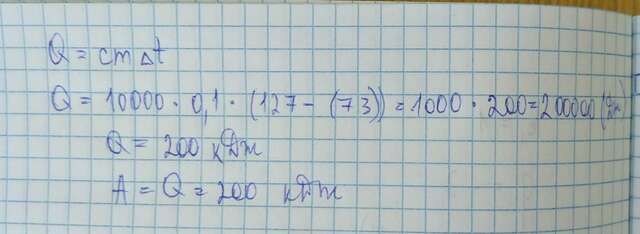 Q = cm Δt
Q = 10000 · 0,1 · (127 - (73)) = 1000 · 200 = 200000 (Дж)
Q = 200 кДж
A = Q = 200 кДж